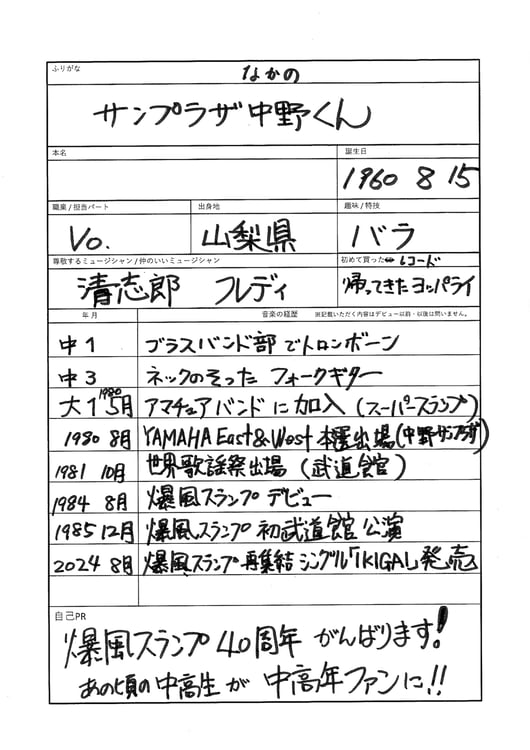 ふりがな
なかの
サンプラザ中野くん
本名
誕生日
1960 8 15
職業 / 担当パート
出身地
趣味 / 特技
Vo.
山梨県
バラ
尊敬するミュージシャン / 仲のいいミュージシャン
初めて買った レコード
清志郎 フレディ
帰ってきたヨッパライ
年月
音楽の経歴 ※記載いただく内容はデビュー以前・以後は問いません。
中1 ブラスバンド部でトロンボーン
中3 ネックのそった フォークギター
1980
大1 5月 アマチュアバンドに加入 (スーパースランプ)
1980 8月 YAMAHA East&West 本選出場(中野サンプラザ)
1981 10月 世界歌謡祭出場 (武道館)
1984 8月 爆風スランプ デビュー
1985 12月 爆風スランプ 初武道館公演
2024 8月 爆風スランプ再集結 シングル「IKIGAI」発売
自己PR
爆風スランプ 40周年 がんばります!
あの頃の中高生が 中高年ファンに!!